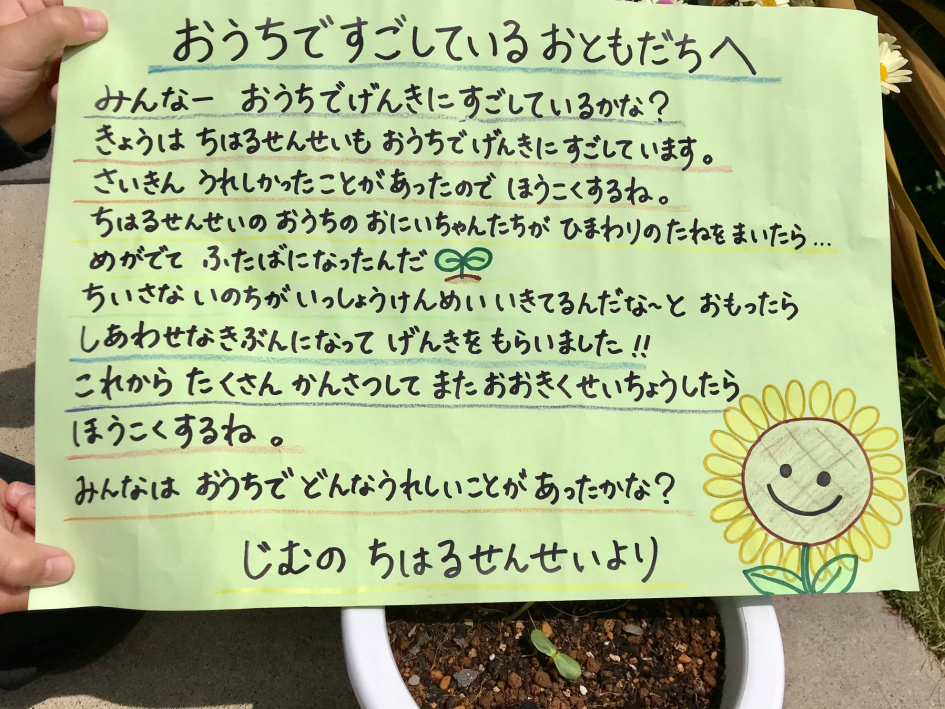 おうちですごしているおともだちへ
みんなー おうちでげんきにすごしているかな？
きょうは ちはるせんせいも おうちでげんきにすごしています。
さいきん うれしかったことがあったので ほうこくするね。
ちはるせんせいの おうちの おにいちゃんたちが ひまわりのたねをまいたら…
めがでて ふたばになったんだ
ちいさな いのちが いっしょうけんめい いきてるんだな～と おもったら
しあわせなきぶんになって げんきをもらいました!!
これから たくさん かんさつして また おおきくせいちょうしたら
ほうこくするね。
みんなは おうちで どんなうれしいことが あったかな？
じむの ちはるせんせいより